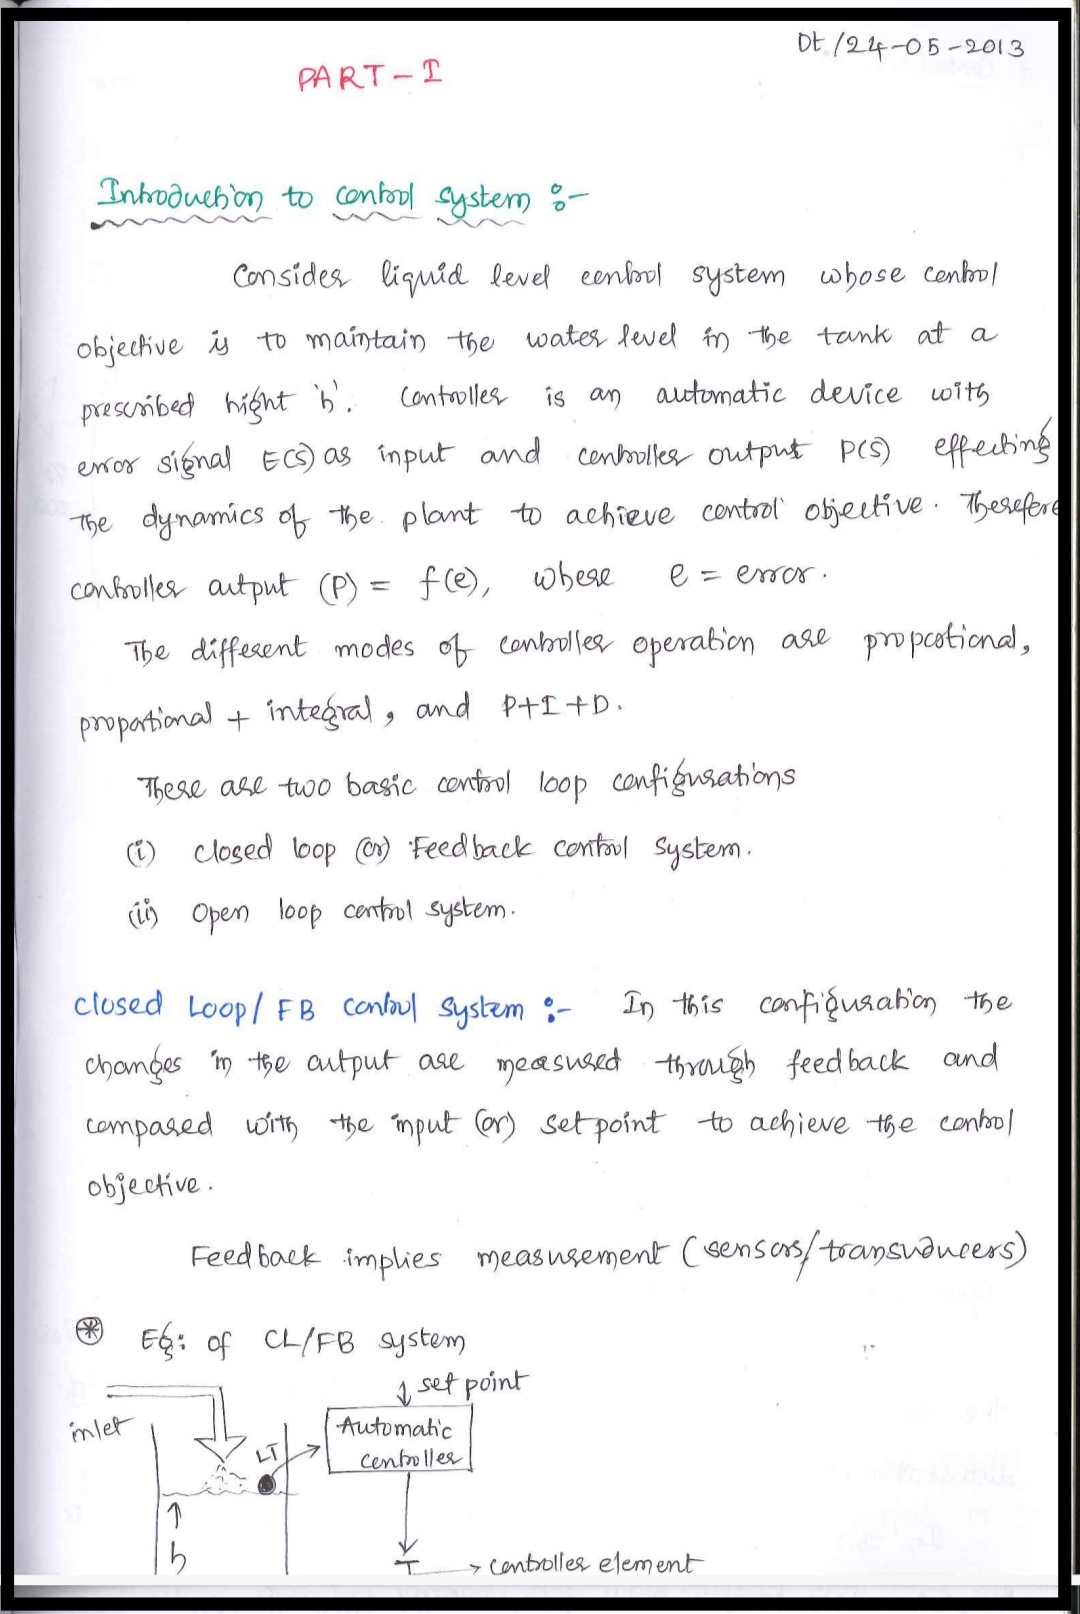 Dt /24-05-2013
PART-I
Introduction to control system :-
Consider liquid level control system whose control
objective is to maintain the water level in the tank at a
prescribed hight 'h'. Controller is an automatic device with
error signal E(S) as input and controller output P(S) effecting
the dynamics of the plant to achieve control objective. Therefore
controller output (P) = f(e), where e = error.
The different modes of controller operation are proportional,
proportional + integral, and P+I+D.
There are two basic control loop configurations
(i) closed loop (or) Feedback control system.
(ii) Open loop control system.
closed Loop/ FB control system :- In this configuration the
changes in the output are measured through feedback and
compared with the input (or) set point to achieve the control
objective.
Feedback implies measurement (sensors/transuducers)
* Eg: of CL/FB system
set point
inlet
LT
Automatic
controller
h
controller element